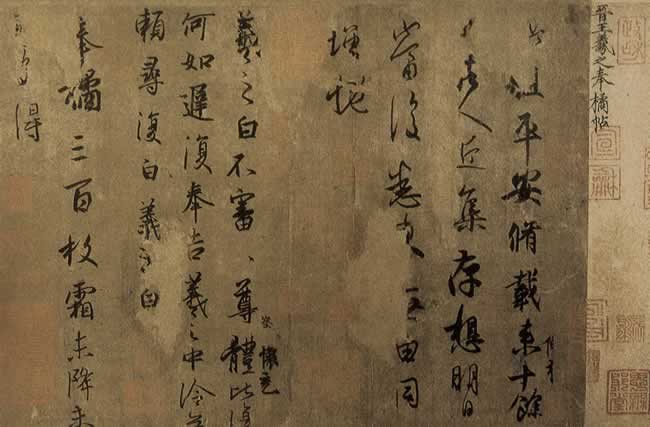 晉王羲之奉橘帖
此粗平安脩載來十餘
日諸人近集存想明日
當復悉來無由同
增慨
羲之白不審、尊體比復
察 懷充
何如遲復奉告羲之中冷無
賴尋復白羲之白
奉橘三百枚霜未降未
可多得